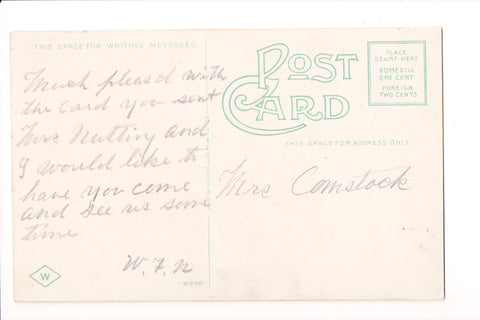 THIS SPACE FOR WRITING MESSAGES.
Much pleasd with
the card you sent
Mrs Nutting and
I would like to
have you come
and see us some
time
W. F. N
W
POST
CARD
PLACE
STAMP HERE
DOMESTIC
ONE CENT
FOREIGN
TWO CENTS
THIS SPACE FOR ADDRESS ONLY.
Mrs Comstock